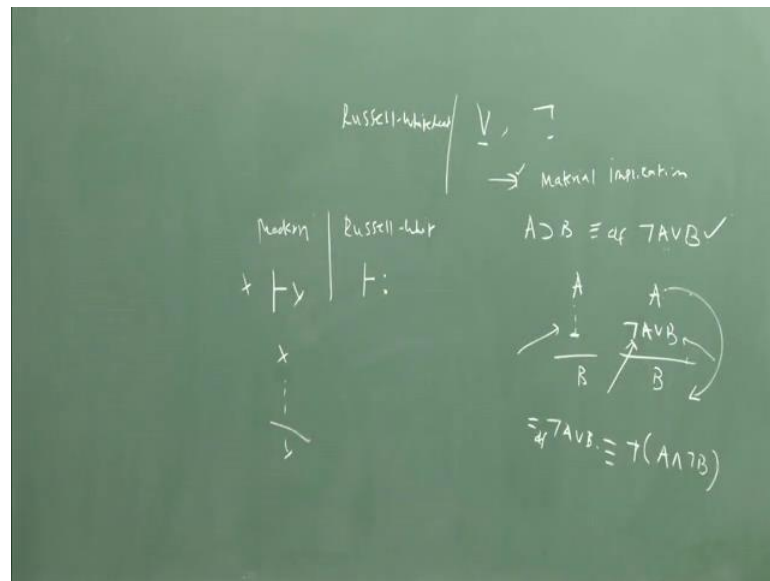 Russell-Whitehead ∨, ¬
→ Material implication
Modern Russell-Whit
A ⊃ B ≡ df ¬A∨B ✓
x ⊢ y ⊢:
A A
¬A∨B
x
B B
y
≡ df ¬A∨B ≡ ¬(A∧¬B)